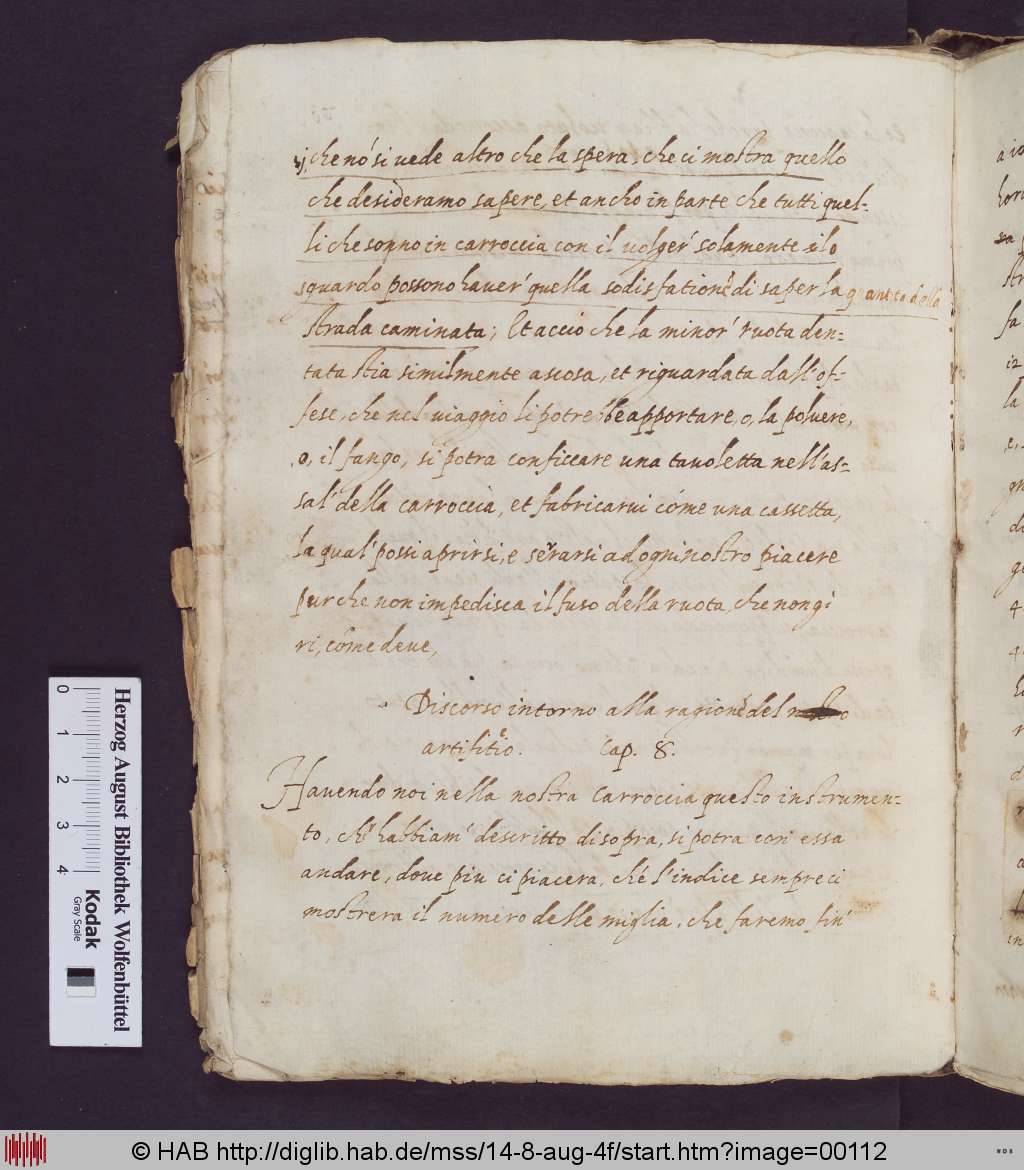 che nó si uede altro che la spera, che ci mostra quello
che desideramo sapere, et ancho in parte che tutti quel-
li che sonno in carroccia con il uolger' solamente lo
sguardo possono hauer' quella sodisfatione di saper la quantita della
strada caminata; Et accio che la minor' ruota den-
tata stia similmente ascosa, et riguardata dall'of-
fese, che nel uiaggio li potrebbe apportare, o, la poluere,
,o, il fango, si potra conficcare una tauoletta nell'as-
sal' della carroccia, et fabricarui cóme una cassetta,
la qual' possi aprirsi, e serarsi ad ogni nostro piacere
pur che non impedisca il fuso della ruota, che non gi
ri, cóme deue,
Discorso intorno alla ragione del
artifitio. Cap. 8.
Hauendo noi nella nostra Carroccia questo instrumen-
to, ch' habbiam' descritto di sopra, si potra con essa
andare, doue piu ci piacera, ché l'indice sempre ci
mostrera il numero delle miglia, che faremo fin'
Herzog August Bibliothek Wolfenbüttel
Kodak
Gray Scale
0 1 2 3 4
© HAB http://diglib.hab.de/mss/14-8-aug-4f/start.htm?image=00112